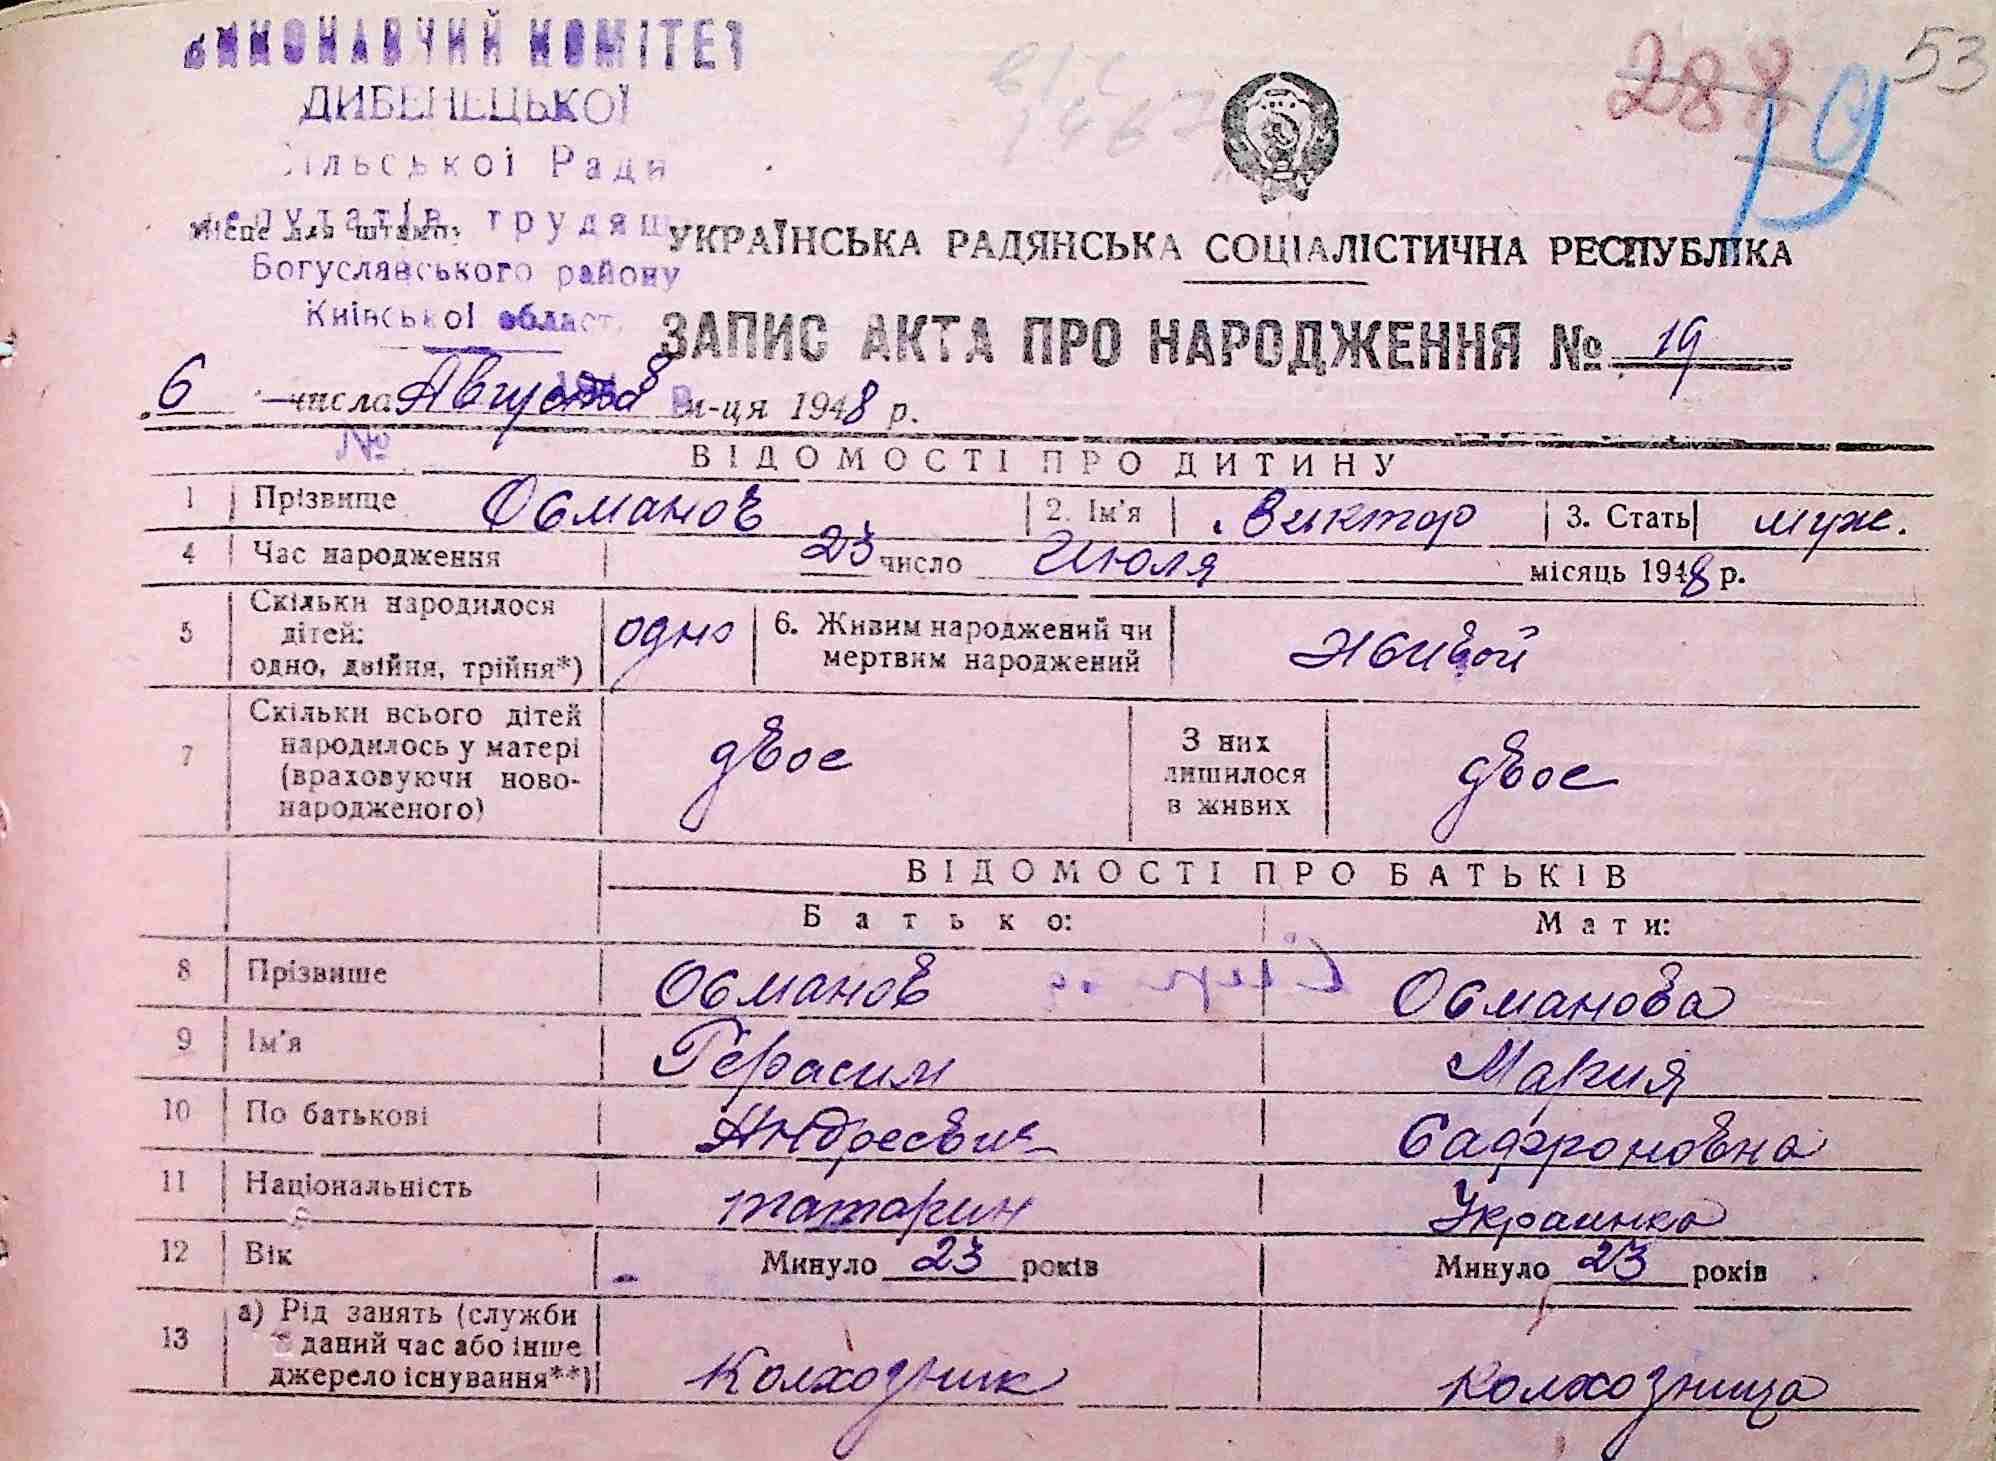 53
288
19
ВИКОНАВЧИЙ КОМІТЕТ
ДИБЕНЕЦЬКОЇ
Сільської Ради
депутатів трудящ
Місце для штампу
Богуславського району
Київської област.
УКРАЇНСЬКА РАДЯНСЬКА СОЦІАЛІСТИЧНА РЕСПУБЛІКА
ЗАПИС АКТА ПРО НАРОДЖЕННЯ № 19
6 числа Августа м-ця 1948 р.
№
ВІДОМОСТІ ПРО ДИТИНУ
1 Прізвище Османов 2. Ім'я Виктор 3. Стать муж.
4 Час народження 23 число Июля місяць 1948 р.
5 Скільки народилося дітей: одно, двійня, трійня*) одно 6. Живим народжений чи мертвим народжений живой
7 Скільки всього дітей народилось у матері (враховуючи ново-народженого) двое З них лишилося в живих двое
ВІДОМОСТІ ПРО БАТЬКІВ
Батько: Мати:
8 Прізвище Османов Османова
9 Ім'я Герасим Мария
10 По батькові Андреевич Сафроновна
11 Національність татарин Украинка
12 Вік Минуло 23 років Минуло 23 років
13 а) Рід занять (служби в даний час або інше джерело існування**) Колхозник колхозница